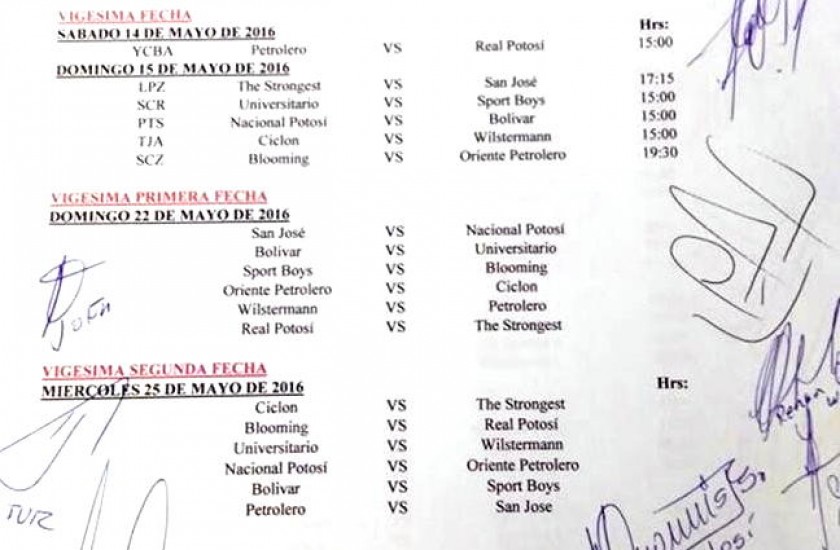 VIGESIMA FECHA Hrs:
SABADO 14 DE MAYO DE 2016
YCBA Petrolero VS Real Potosí 15:00
DOMINGO 15 DE MAYO DE 2016
LPZ The Strongest VS San José 17:15
SCR Universitario VS Sport Boys 15:00
PTS Nacional Potosí VS Bolivar 15:00
TJA Ciclon VS Wilstermann 15:00
SCZ Blooming VS Oriente Petrolero 19:30
VIGESIMA PRIMERA FECHA
DOMINGO 22 DE MAYO DE 2016
San José VS Nacional Potosí
Bolivar VS Universitario
Sport Boys VS Blooming
Oriente Petrolero VS Ciclon
Wilstermann VS Petrolero
Real Potosí VS The Strongest
VIGESIMA SEGUNDA FECHA
MIERCOLES 25 DE MAYO DE 2016 Hrs:
Ciclon VS The Strongest
Blooming VS Real Potosí
Universitario VS Wilstermann
Nacional Potosí VS Oriente Petrolero
Bolivar VS Sport Boys
Petrolero VS San Jose